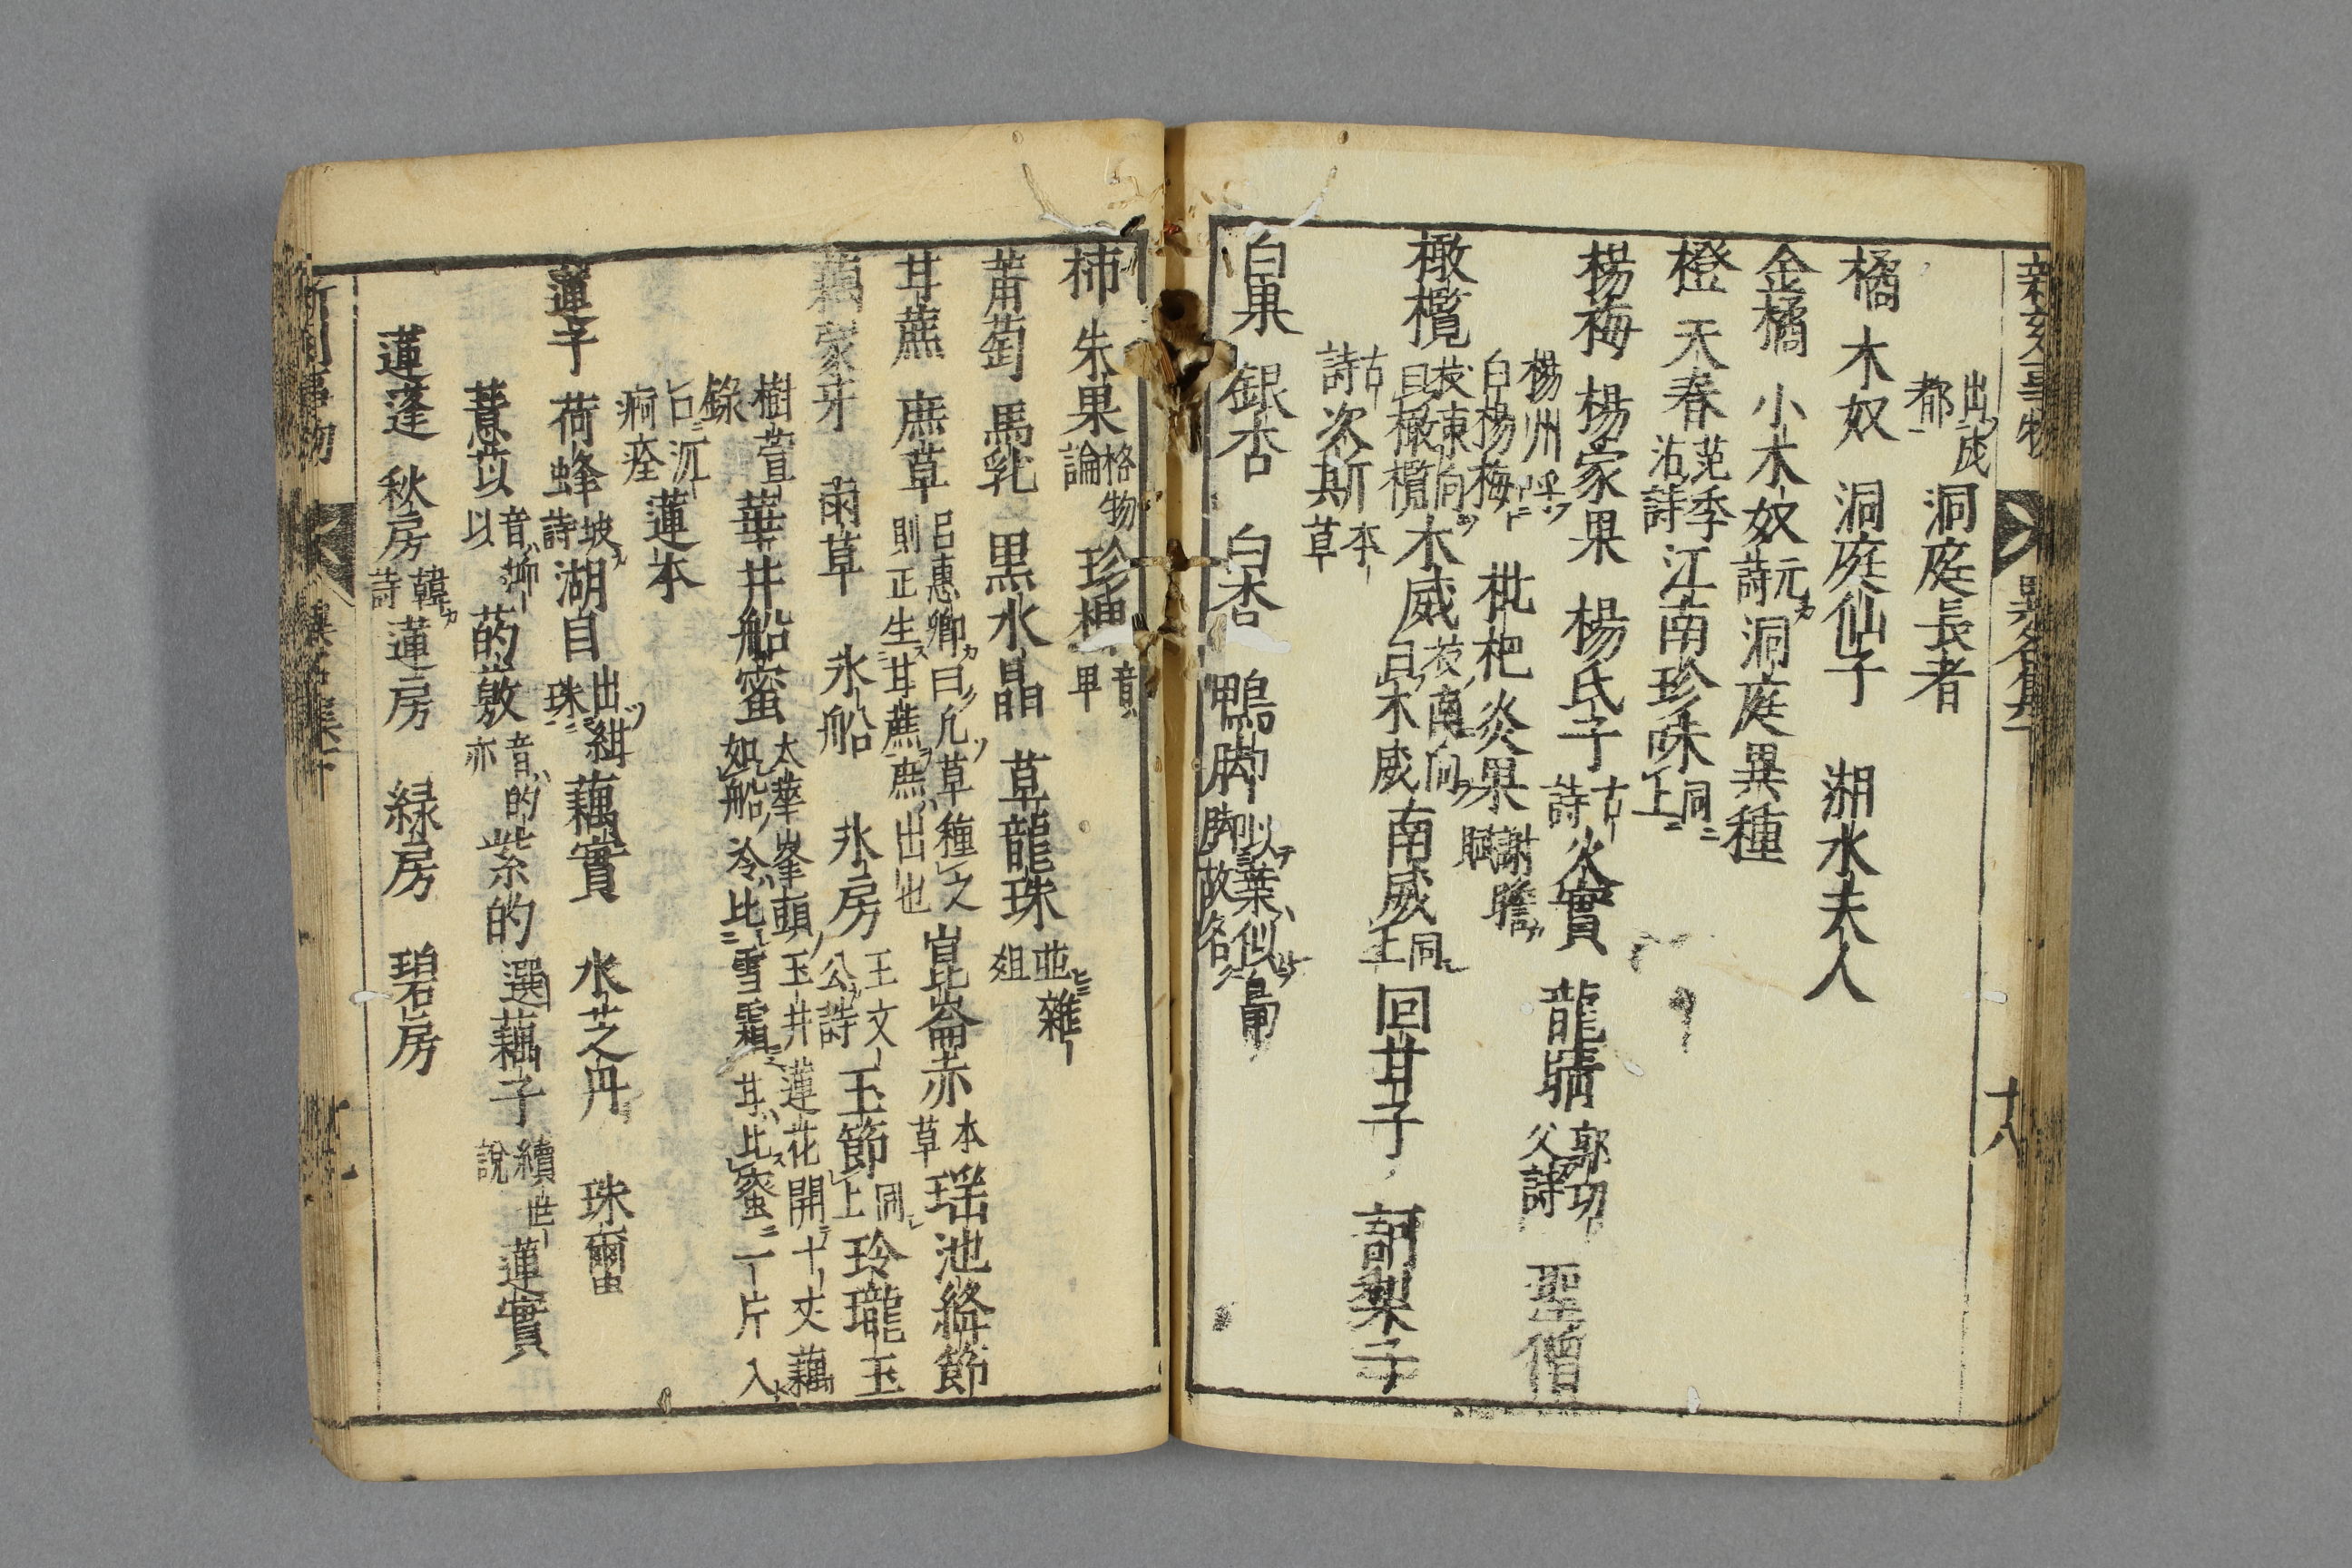 新刻事物 異名集下 十八
出成都 洞庭長者
橘 木奴 洞庭仙子 湖水夫人
金橘 小木奴 元詩 洞庭異種
橙 天春 范季沽詩 江南珍珠 同上
楊梅 楊家果 楊氏子 古詩 火實 龍睛 郭功父詩 聖僧
楊州呼白楊梅 枇杷 炎果 謝瞻賦
橄欖 枝東向曰橄欖 木威 枝南向曰木威 南威 同上 回甘子 訶梨子
古詩 次斯 本草
白果 銀杏 白杏 鴨脚 以葉似鳧脚故名
柿 朱果 格物論 珍
莆萄 馬乳 黒水晶 草龍珠 並雜俎
甘蔗 庶草 呂惠卿曰凡草種之則正生甘蔗庶出也 崑崙赤 本草 瑤池絳節
藕 家牙 雨草 氷船 氷房 王文公詩 玉節 同上 玲瓏玉
樹萱錄 華井船蜜 太華峯頭玉井蓮花開十丈藕如船冷比雪霜甘比蜜一片入
口沉痾痊 蓮本
蓮子 荷蜂 坡詩 湖目 出紺珠 藕實 水芝丹 珠
薏苡 音抑以 菂薂 音的亦 紫的 選 藕子 續世說 蓮實
蓮蓬 秋房 韓詩 蓮房 緑房 碧房